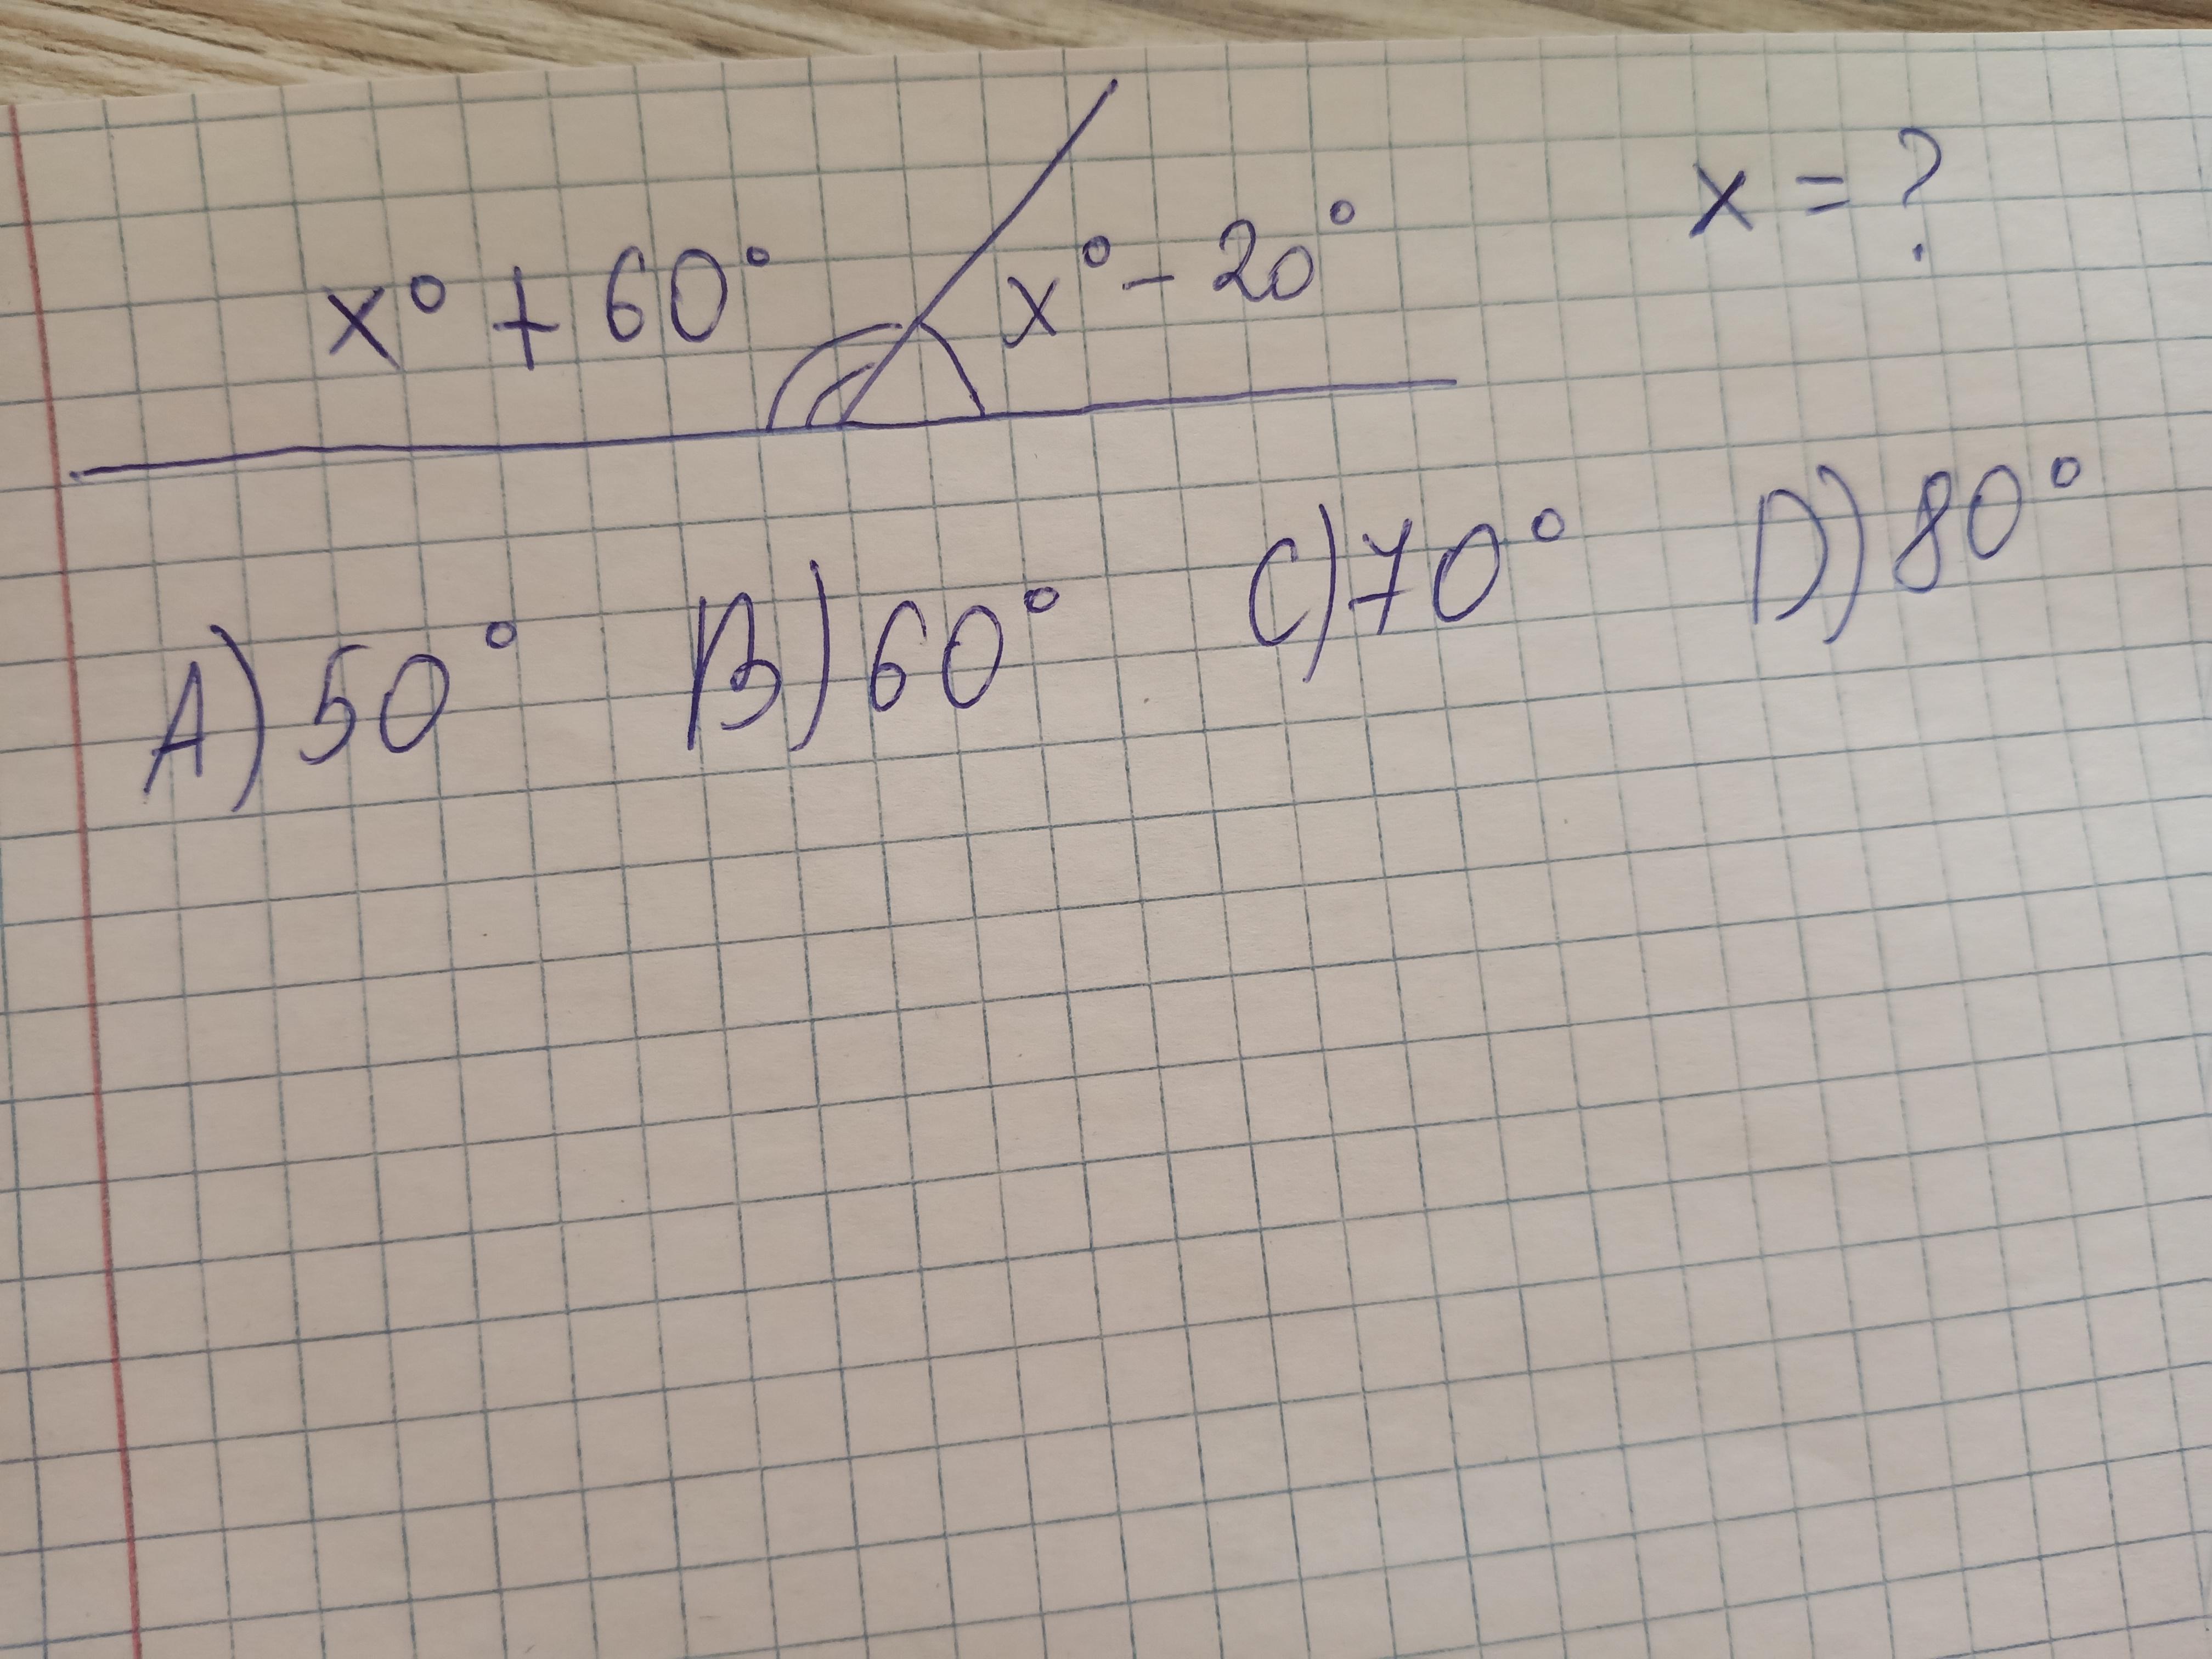 x° + 60° x° - 20° x = ?
A) 50° B) 60° C) 70° D) 80°